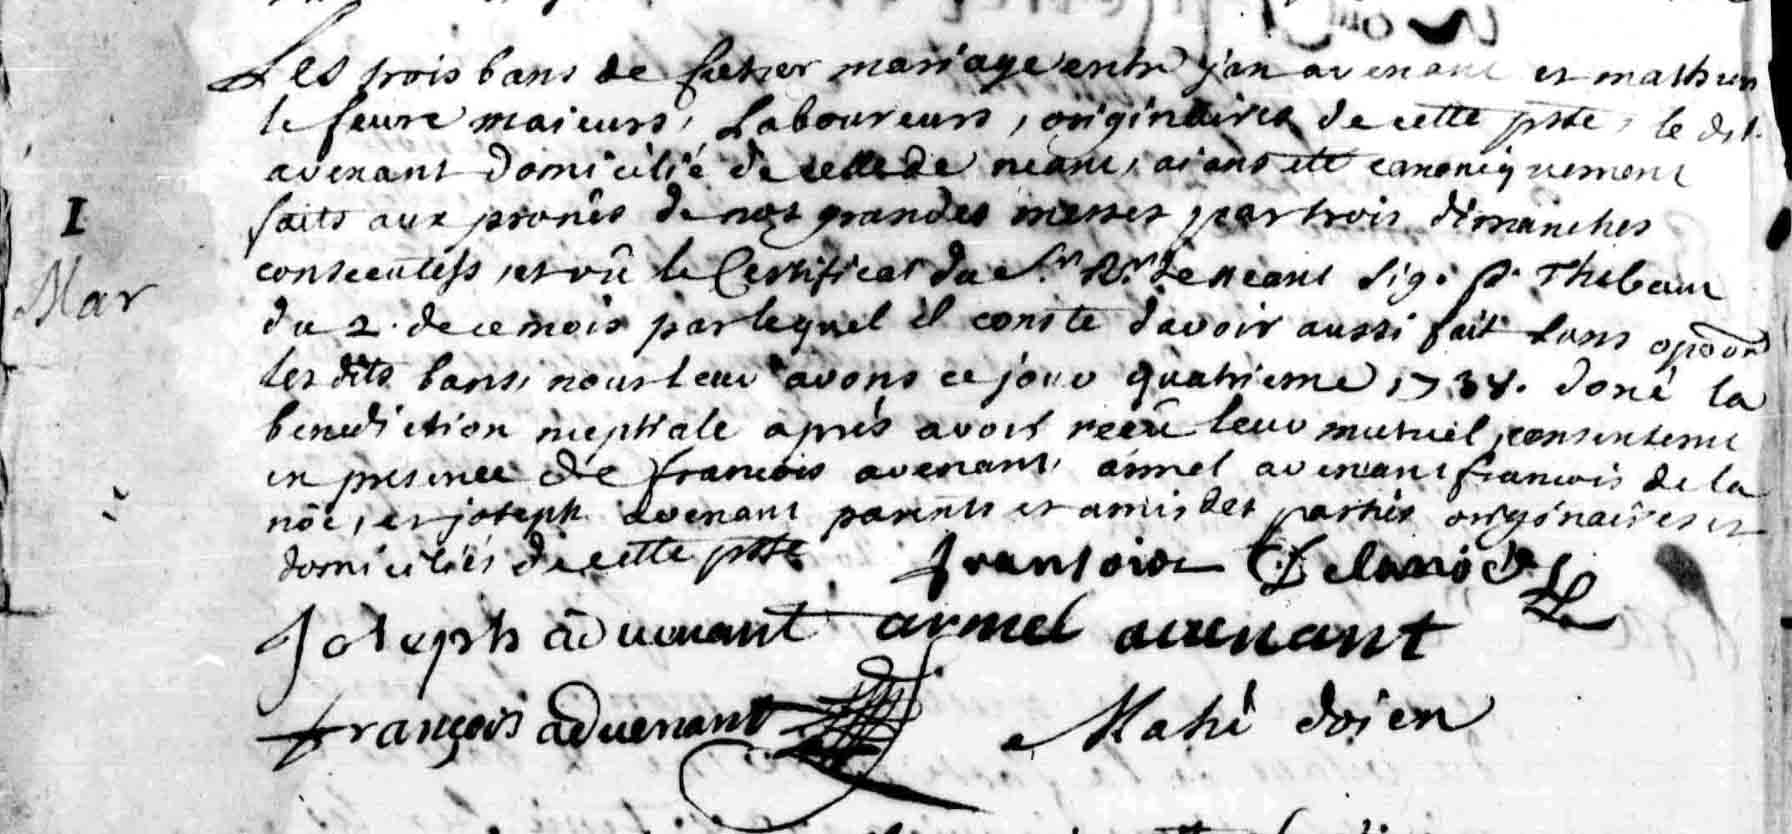 Les trois bans de futur mariage entre jan avenant et mathurin
le feuvre maieurs, Laboureurs, originaires de cette psse, le dit
avenant domicilié de celle de neant, aians eté canoniquement
faits aux prones de nos grandes messes par trois dimanches
consecutifs, et vû le Certificat du Sr Rr de neant sig. P. Thebaut
du 2. de ce mois par lequel il conste d'avoir aussi fait sans opoon
les dits bans, nous leur avons ce jour quatrieme 1738. doné la
benediction nuptiale aprés avoir recû leur mutuel consentemt
en presence de francois avenant, armel avenant francois de la
nöe, et joseph avenant parents et amis des parties originaires et
domiciliés de cette psse
fransois Delanoë
I
Mar
Joseph advenant armel avenant
françois advenant
Mahé doien